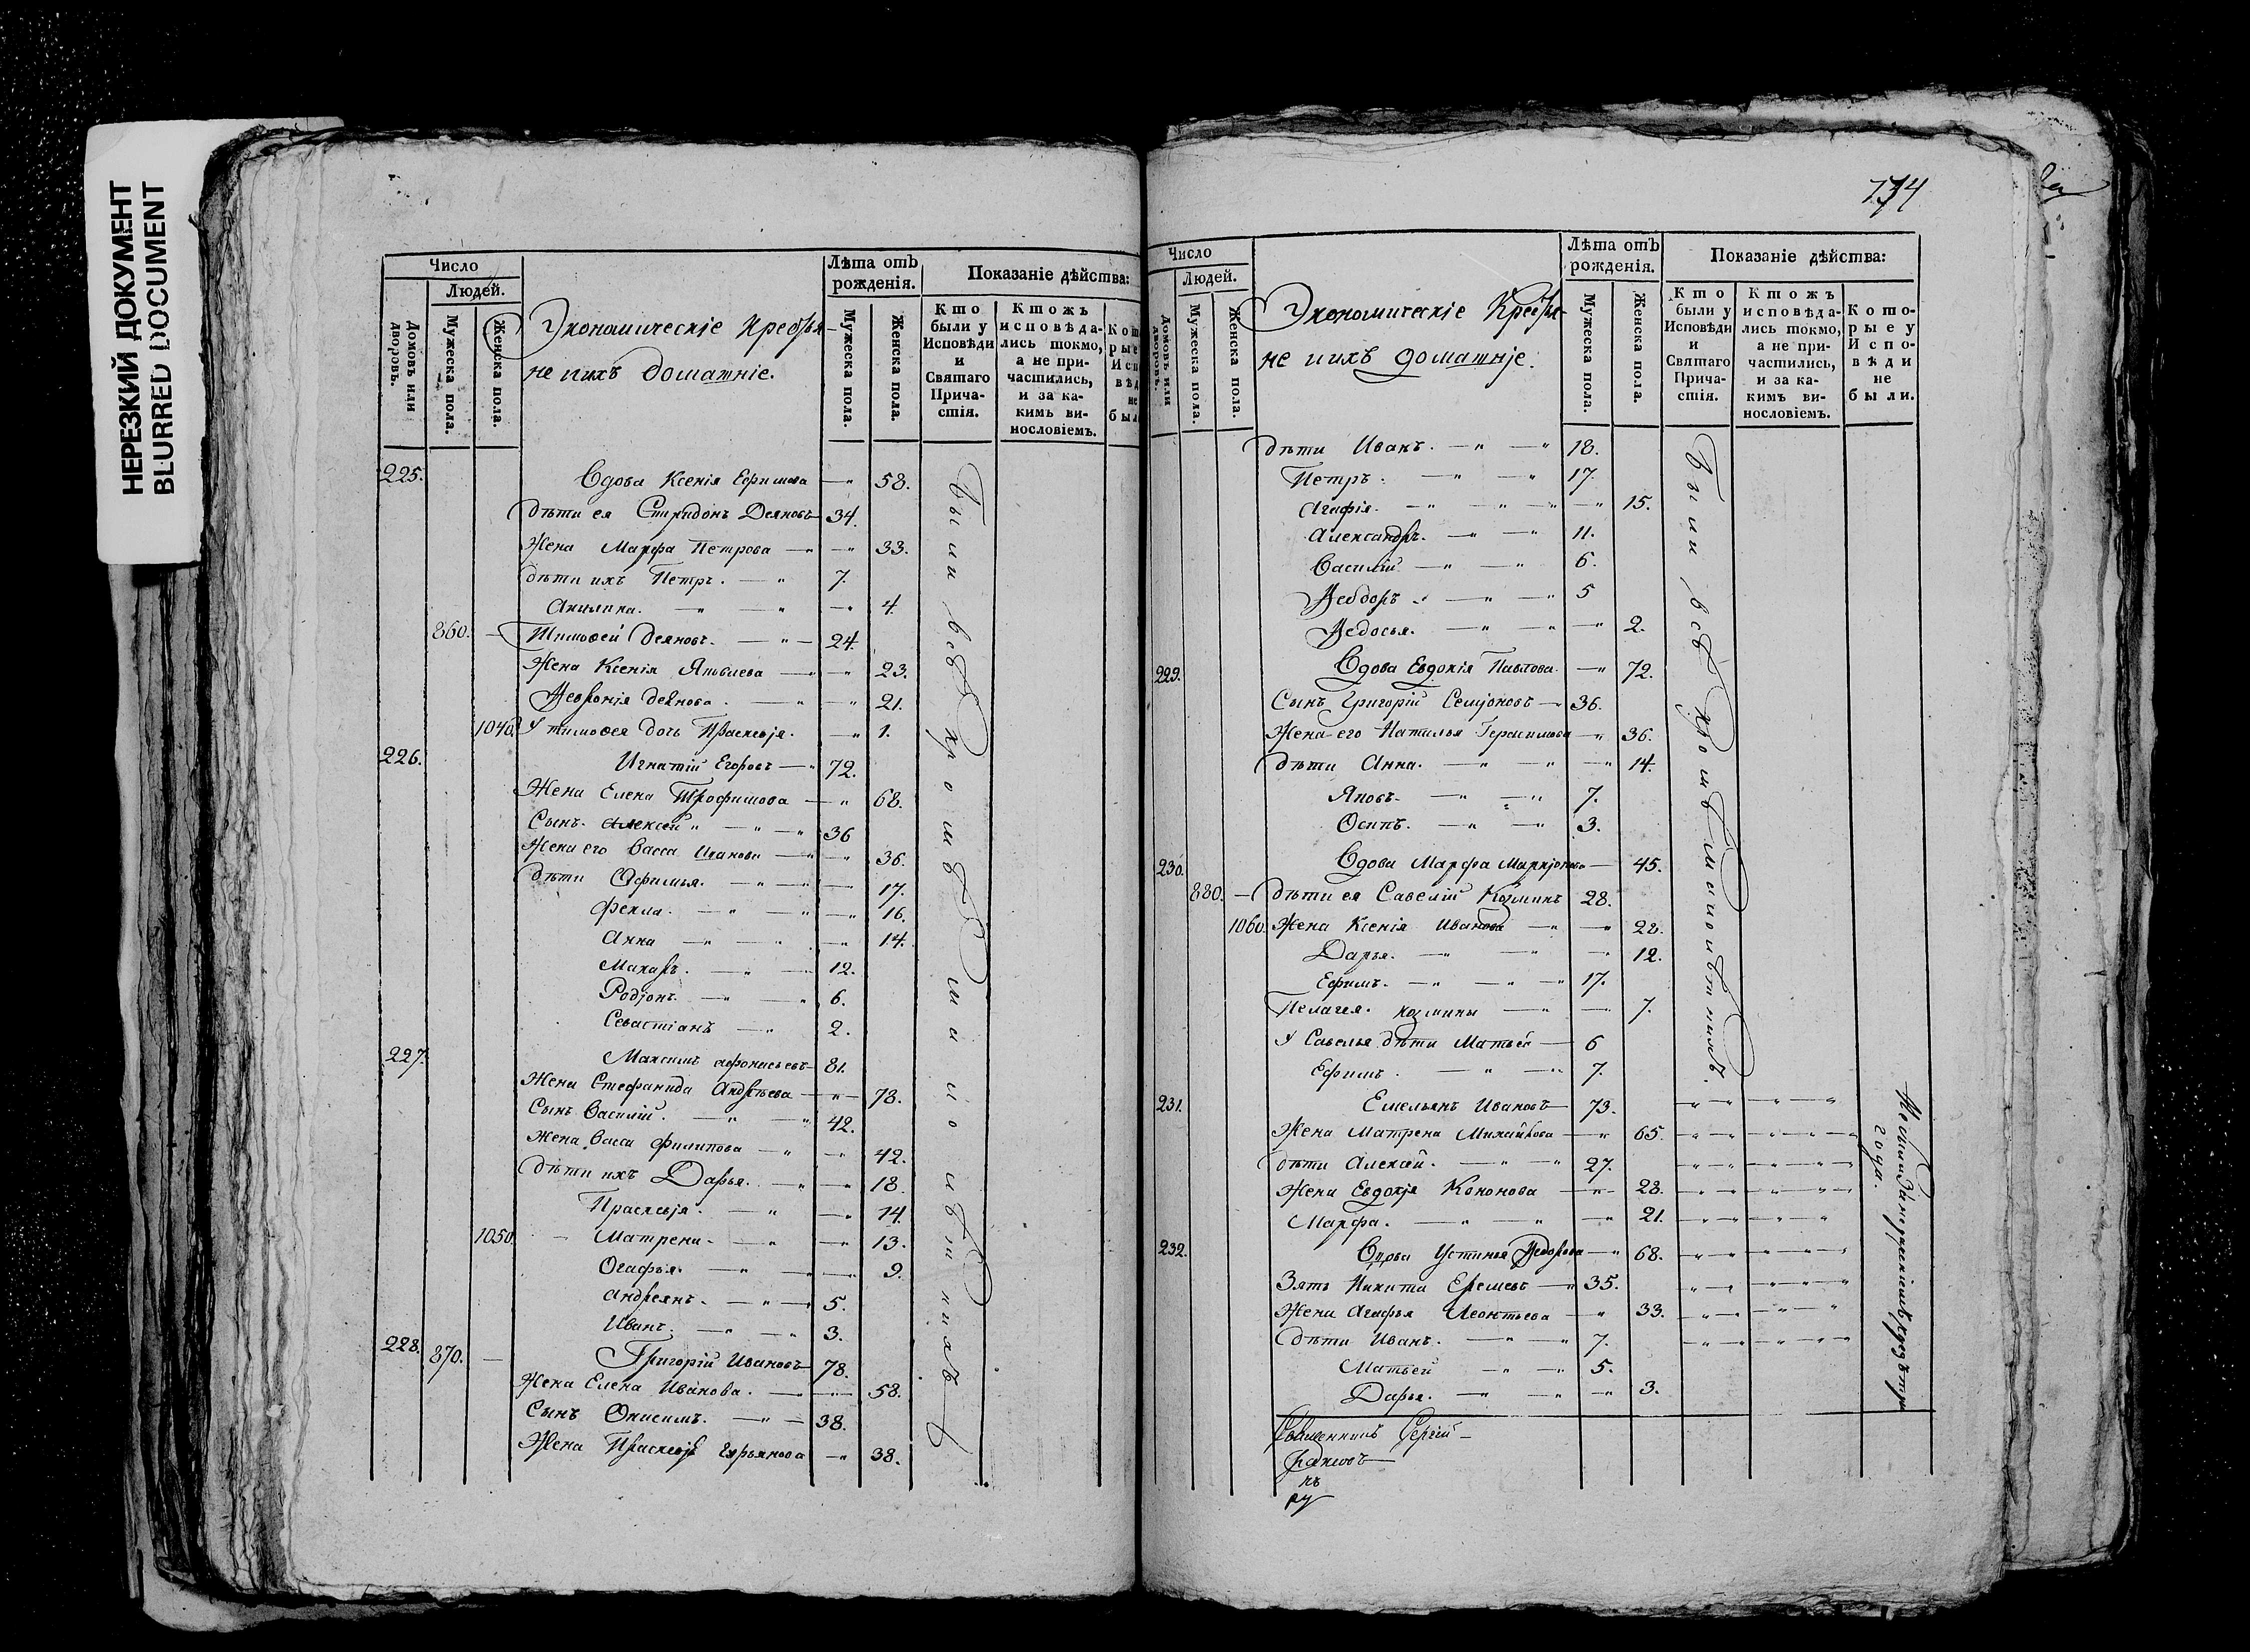 НЕРЕЗКИЙ ДОКУМЕНТ
BLURRED DOCUMENT
Число
Людей.
Домовъ или дворовъ.
Мужеска пола.
Женска пола.
Экономическіе Крестья-
не и ихъ домашніе.
Лѣта отъ рожденія.
Мужеска пола.
Женска пола.
Показаніе дѣйства:
Кто были у Исповѣди и Святаго Причастія.
Ктожъ исповѣдались токмо, а не причастились, и за какимъ винословіемъ.
225. Вдова Ксенія Ефимова —" 58.
дѣти ея Спиридонъ Деяновъ 34.
Жена Марфа Петрова —" —" 33.
дѣти ихъ Петръ. —" 7.
Акилина. —" —" —" 4.
860. — Тимофей Деяновъ. —"— 24.
Жена Ксенія Яковлева —" —" 23.
Февронія деянова. —" —" 21.
1040. У тимофея дочь Праскевія. —" 1.
226. Игнатій Егоровъ —" 72.
Жена Елена Трофимова —" 68.
Сынъ Алексей " —"—" 36
Жена его Васса Иванова —" —" 36.
дѣти Офимья. —"—" — 17.
Фекла. —" —" —" 16.
Анна —" —" —" 14.
Макаръ. —" —" 12.
Родіонъ. —" —" 6.
Севастіанъ —" 2.
227. Максимъ афонасьевъ 81.
Жена Стефанида Андрѣева —"— 78.
Сынъ Василій. —" —" 42.
Жена Васса Филипова —" —" 42.
дѣти ихъ Дарья. —" —" 18.
Праскевія. —" —" 14.
1050. — Матрена. —" —" 13.
Огафья. —" —" —" 9.
андреянъ. —"—" 5.
Иванъ. —" —" 3.
228. 870. — Григорій Ивановъ 78.
Жена Елена Иванова. —" —"— 58.
Сынъ Онисимъ. —"— 38.
Жена Праскевія —" 38.
Были всѣ кромѣ малолѣтнихъ
174
Число
Людей.
Домовъ или дворовъ.
Мужеска пола.
Женска пола.
Экономическіе Крестья-
не и ихъ домашніе.
Лѣта отъ рожденія.
Мужеска пола.
Женска пола.
Показаніе дѣйства:
Кто были у Исповѣди и Святаго Причастія.
Ктожъ исповѣдались токмо, а не причастились, и за какимъ винословіемъ.
Которые у Исповѣди не были.
дѣти Иванъ. —" —" 18.
Петръ. —" —" 17.
Агафія. —" —" —" —" 15.
Александръ. —" —" 11.
Василій —" —" 6.
Феодоръ. —" —" 5
Федосья. —" —" —" 2.
229. Вдова Евдокія Павлова. —" 72.
Сынъ Григорій Семіоновъ —" 36.
Жена его Наталья Герасимова —" 36.
дѣти Анна. —" —" —" 14.
Яковъ. —" —" 7.
Осипъ. —" —" 3.
230. Вдова Марфа — 45.
880. — дѣти ея Савелій Козминъ 28.
1060. Жена Ксенія Иванова —" —" 22.
Дарья. —" —" —" 12.
Ефимъ. —" —" —" 17.
Пелагея. козмины —" —" 7.
У Савелья дѣти Матвей — 6
Ефимъ. —" —" 7.
231. Емельянъ Ивановъ 73.
Жена Матрена Михайлова —" 65.
дѣти Алексей. —" —" 27.
Жена Евдокія Кононова —"— 28.
Марфа. —" —" —" 21.
232. Вдова Устинья Федорова —" 68.
Зять Никита Еремевъ —" 35.
Жена Агафья Леонтьева —" 33.
дѣти Иванъ. —" —" 7.
Матвей —" —" 5.
Дарья. —" —" —" 3.
Были всѣ кромѣ малолѣтнихъ.
года.
Священникъ Сергій